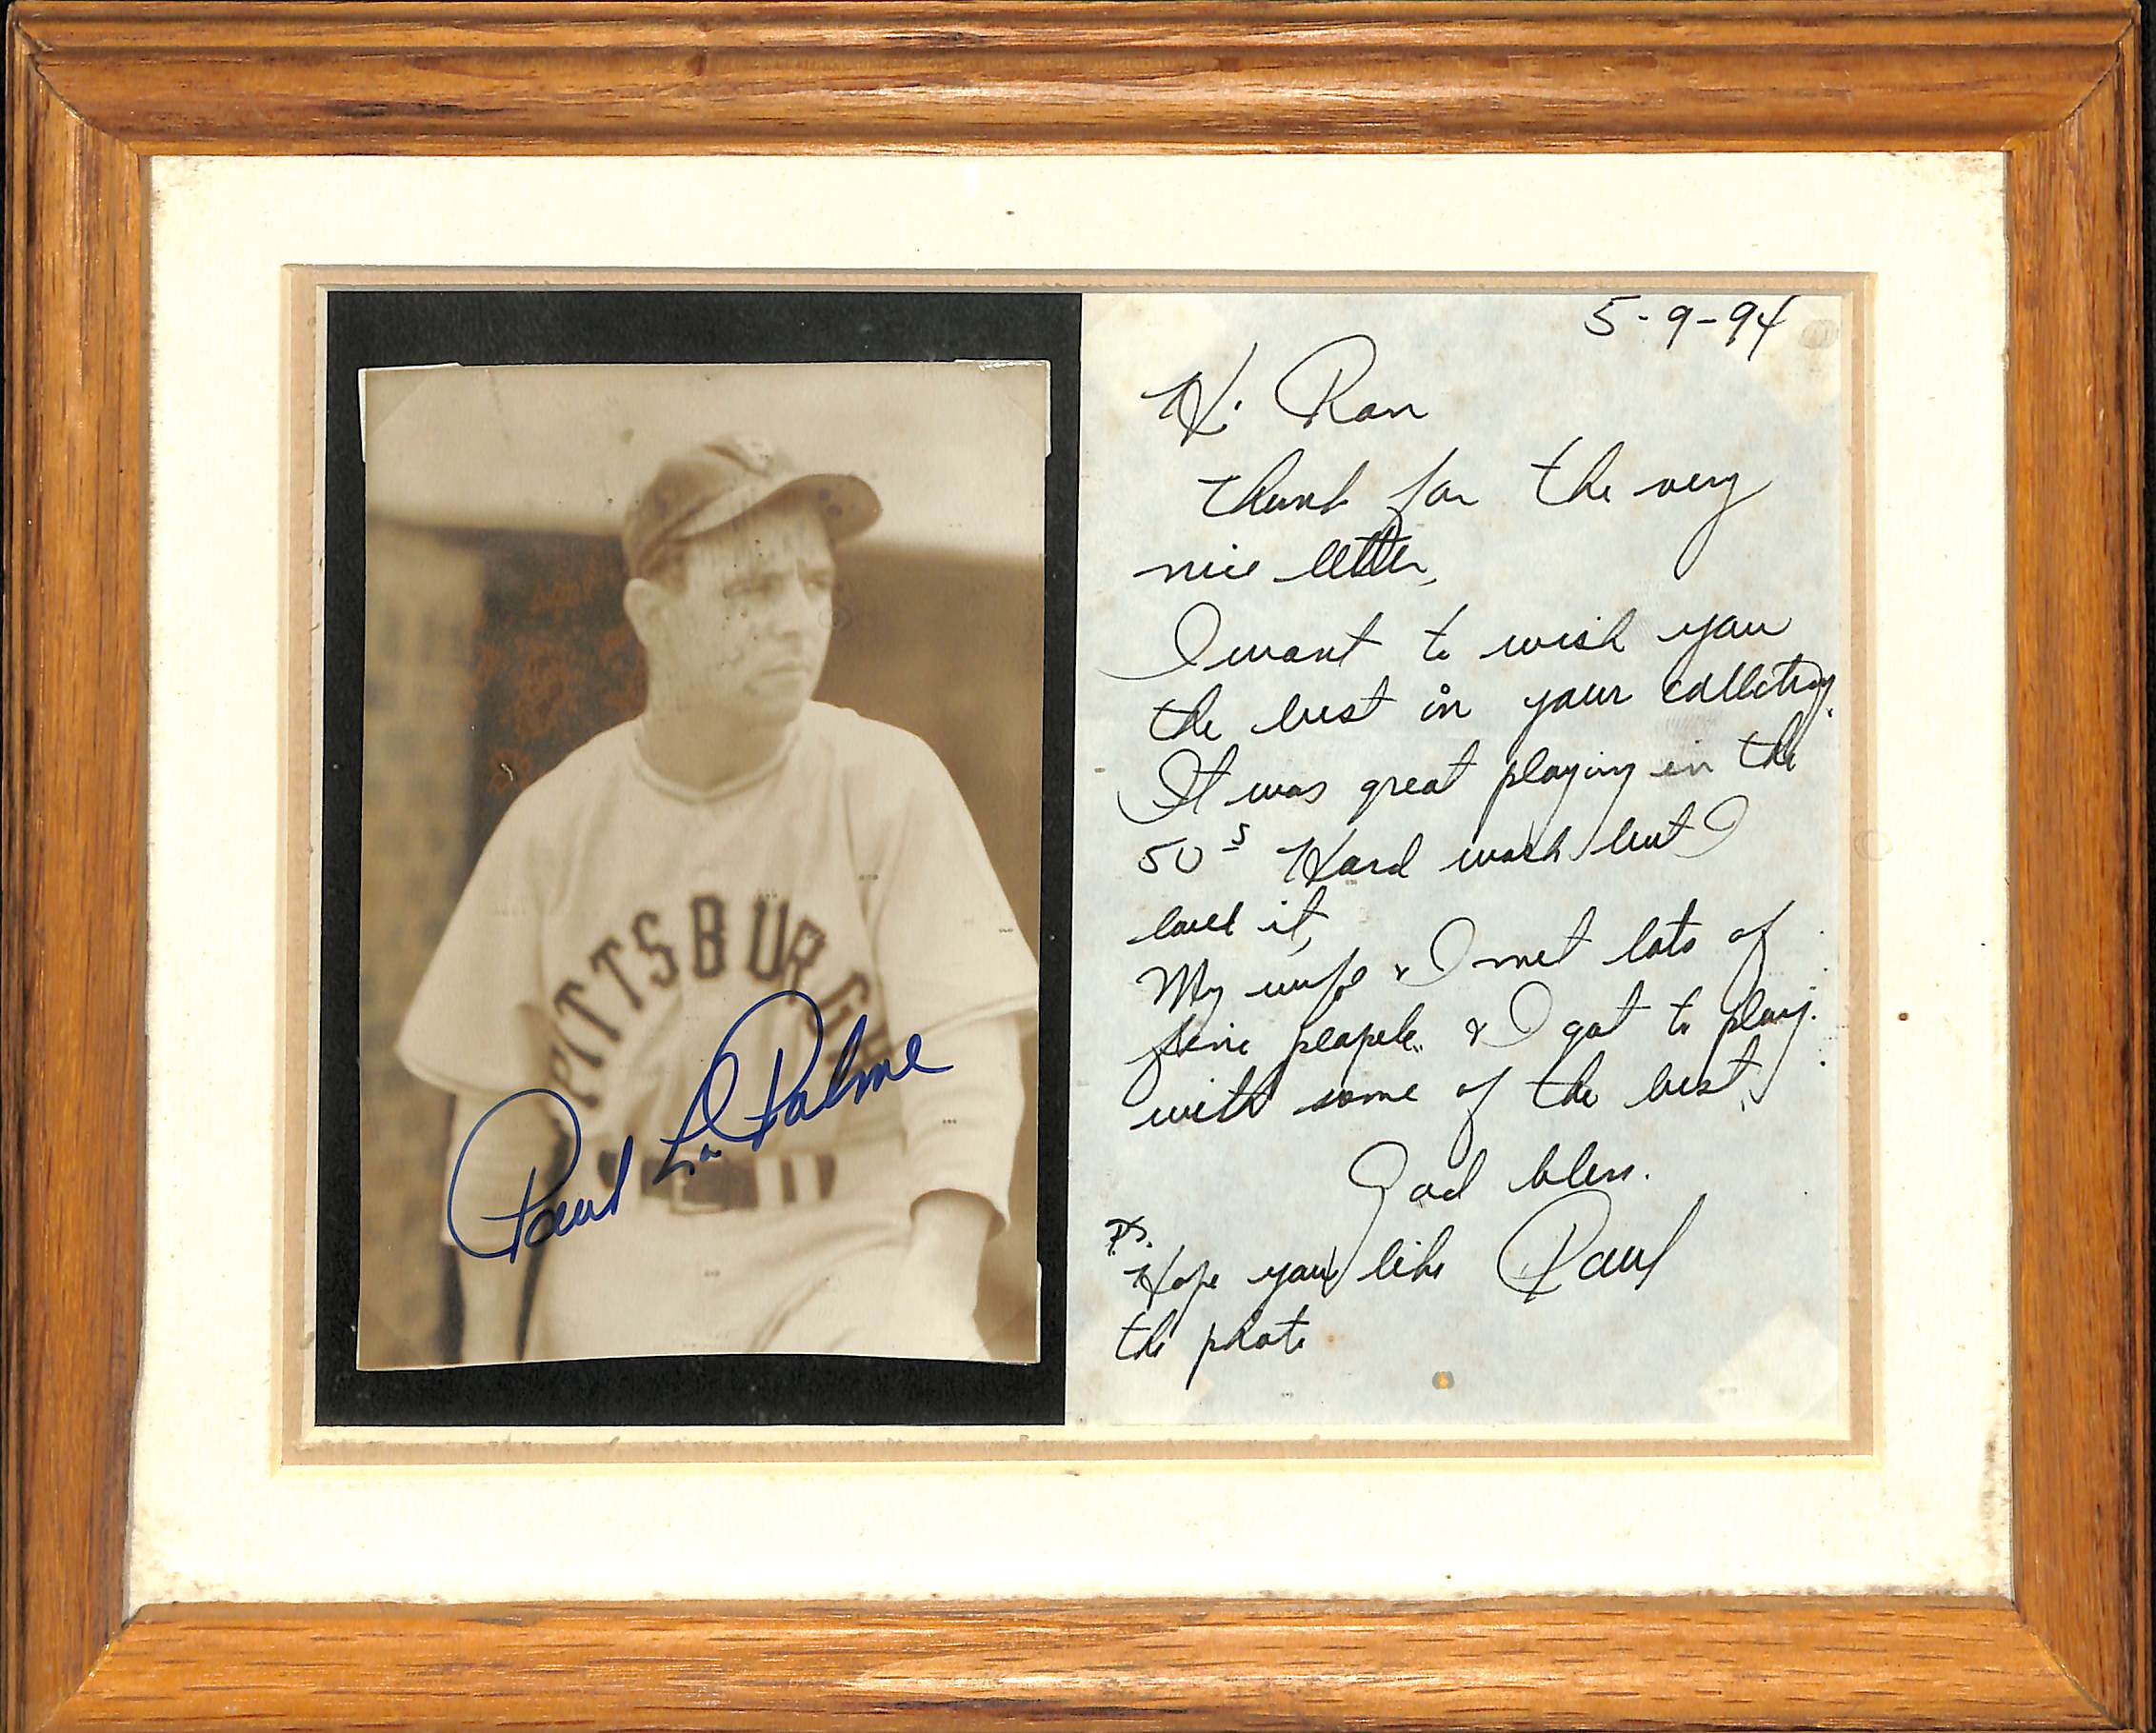 PITTSBURGH
Paul La Palme
5-9-94
Hi Ron
Thank for the very
nice letter,
I want to wish you
the best in your collecting.
It was great playing in the
50s Hard work but I
loved it,
My wife & I met lots of
fine people & I got to play
with some of the best,
God bless.
Paul
PS.
Hope you like
the photo